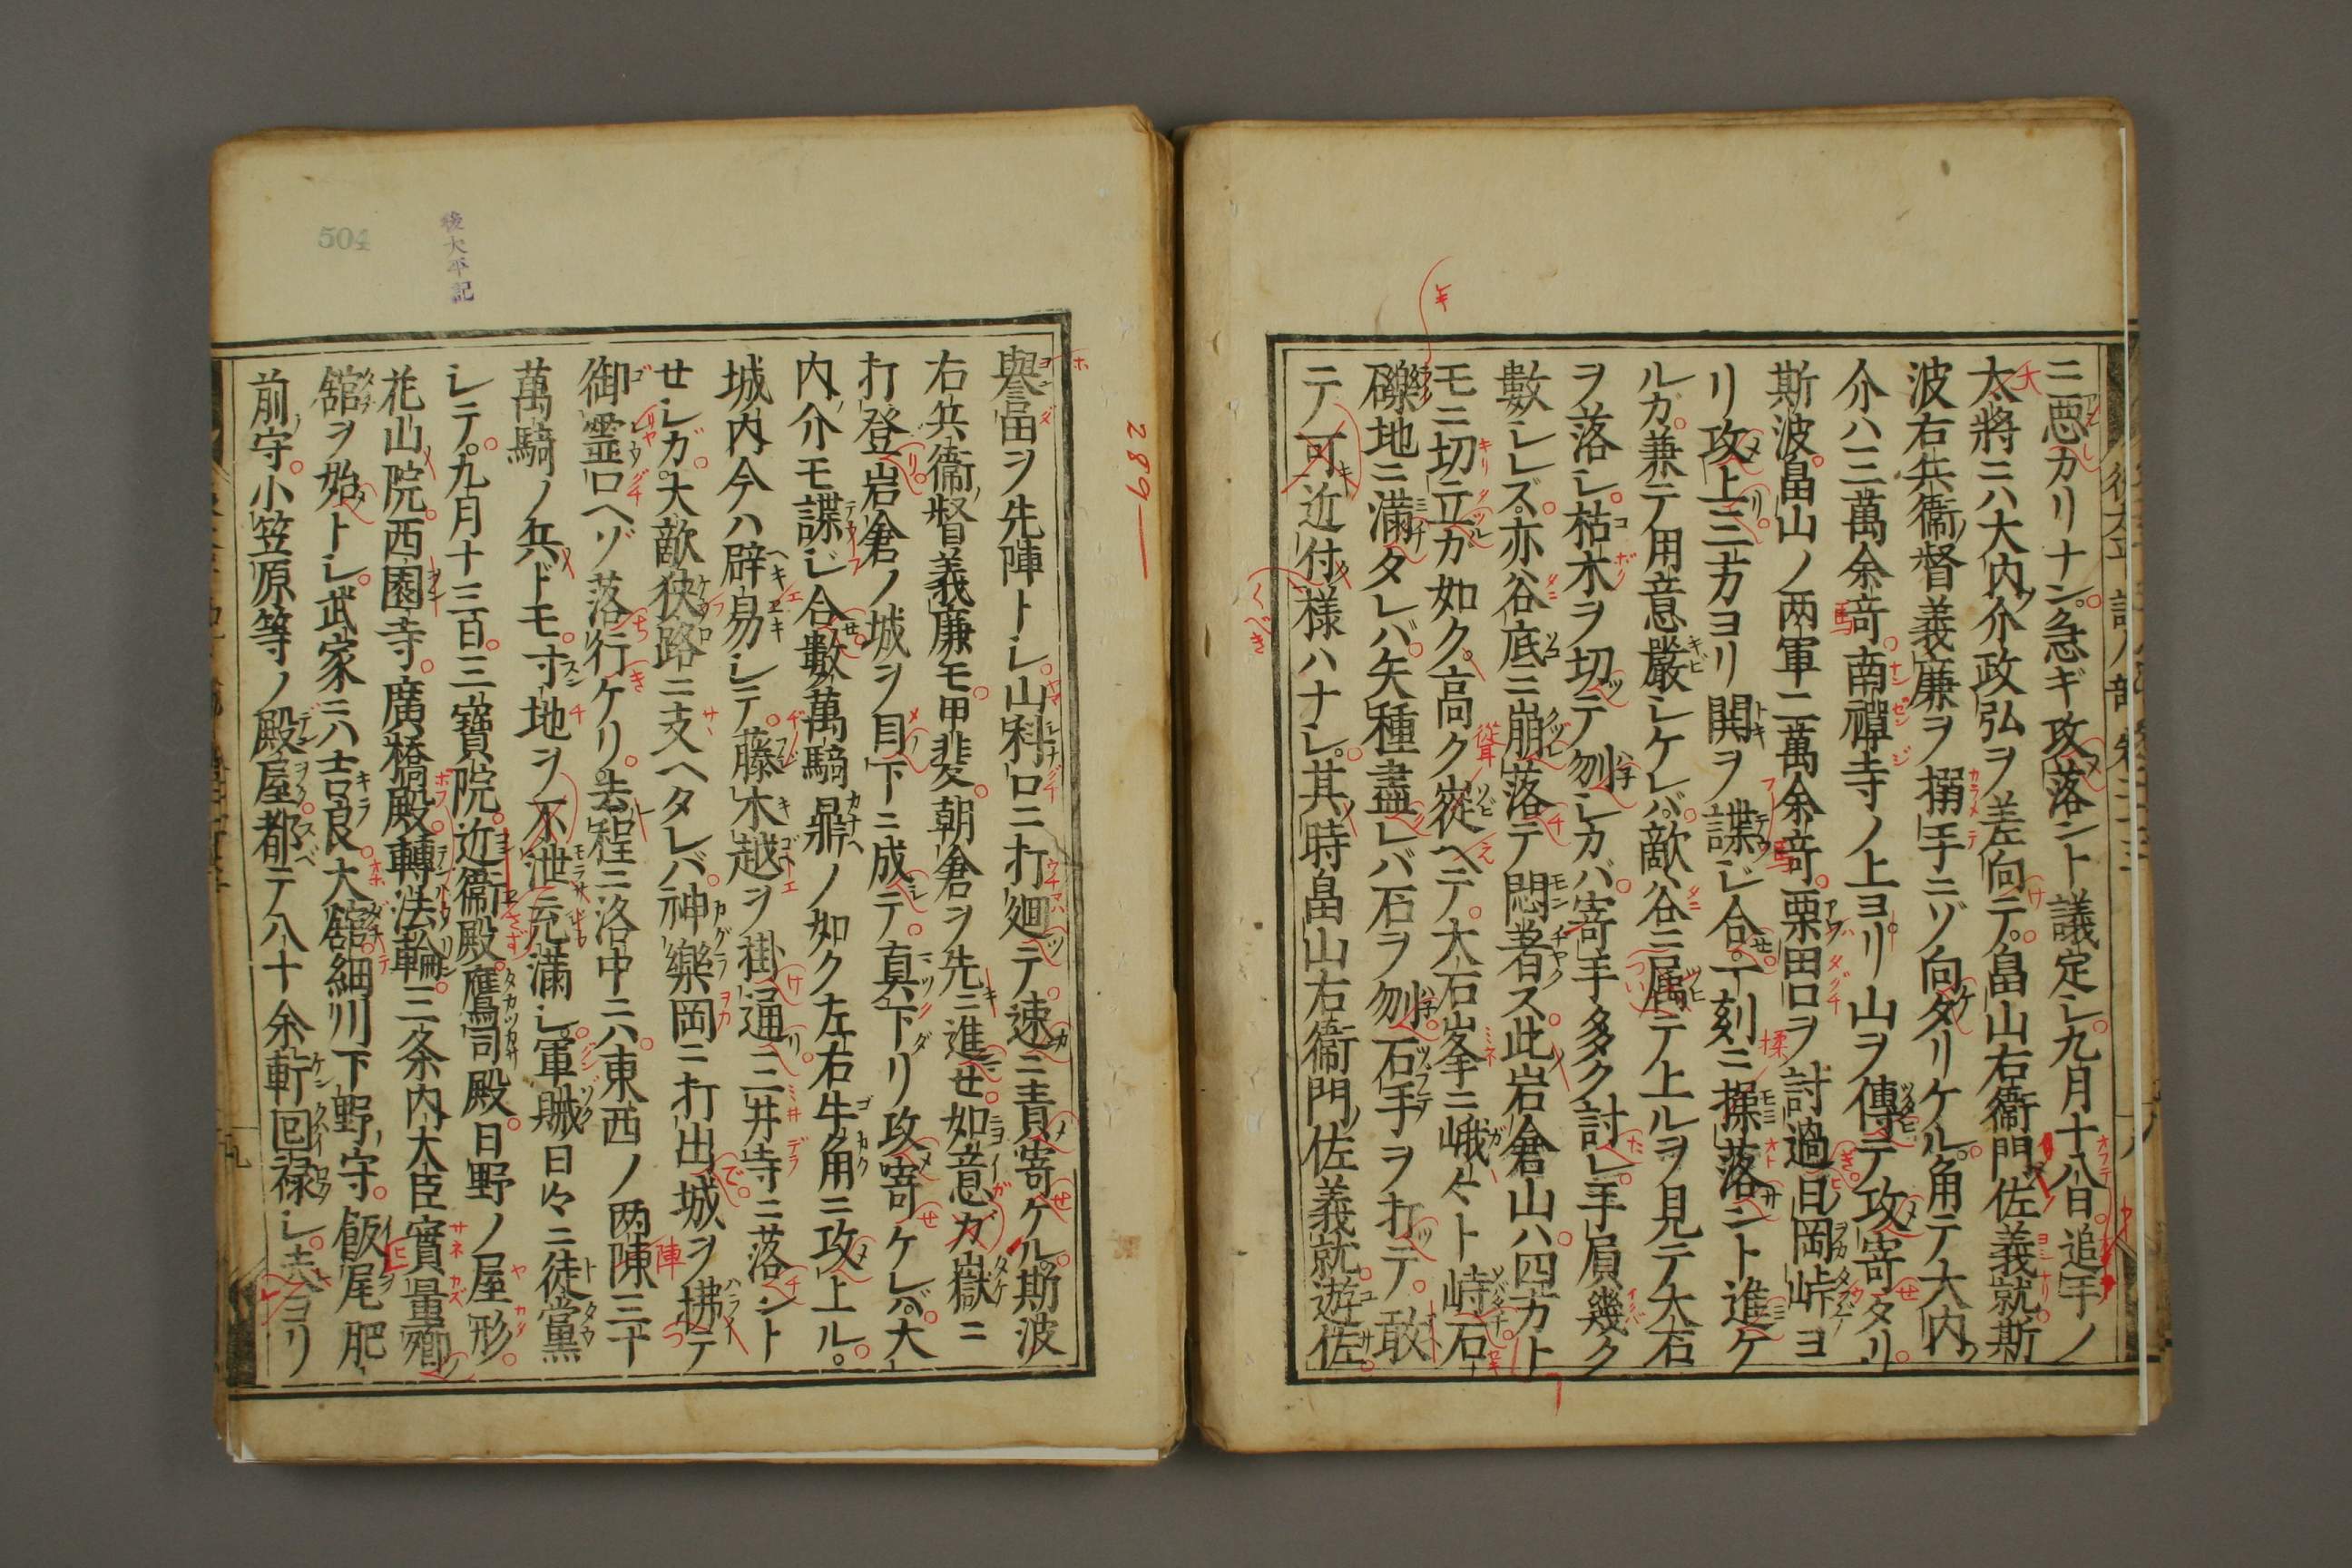 三悪カリナン。急ギ攻落ント議定シ。九月十八日。追手ノ
太將ニハ大内ノ介政弘ヲ差向テ。畠山右衞門ノ佐義就。斯
波右兵衞ノ督義廉ヲ搦手ニゾ向タリケル。角テ大内ノ
介ハ三萬余竒。南禪寺ノ上ヨリ山ヲ傳テ攻寄タリ。
斯波。畠山ノ两軍二萬余竒。栗田口ヲ討過日ノ岡峠ヨ
リ攻上三方ヨリ閧ヲ諜シ合。一刻ニ操落ント進ケ
ルガ。兼テ用意嚴シケレバ。敵谷ニ属テ上ルヲ見テ大石
ヲ落シ。枯木ヲ切テ刎シカバ。寄手多ク討レ。手屓幾ク
數シレズ。亦谷底ニ崩落テ悶着ス。此岩倉山ハ四方ト
モニ切立ガ如ク。高ク嵸ヘテ。大石峯ニ峨々ト峙。石
礫地ニ滿タレバ。矢種盡レバ石ヲ刎。石手ヲ打テ。敢
テ可近付様ハナシ。其時畠山右衞門ノ佐義就。遊佐。
譽畠ヲ先陣トシ。山科口ニ打廻テ。速ニ責寄ケル。斯波
右兵衞ノ督義廉モ。甲斐。朝倉ヲ先ニ進セ。如意ガ嶽ニ
打登。岩倉ノ城ヲ目ノ下ニ成テ。真下リ攻寄ケレバ。大
内ノ介モ諜シ合。數萬騎鼎ノ如ク左右牛角ニ攻上ル。
城内今ハ辟易シテ。藤木越ヲ掛通。三井寺ニ落ント
セシガ。大敵狹路ニ支ヘタレバ。神樂岡ニ打出。城ヲ拂テ
御靈口ヘゾ落行ケリ。去程ニ洛中ニハ。東西ノ两陳三十
萬騎ノ兵ドモ。寸地ヲ不泄充滿シ。軍賊日々ニ徒黨
シテ。九月十三日。三寶院。近衞殿。鷹司殿。日野ノ屋形。
花山ノ院。西園寺。廣橋殿。轉法輪。三条内大臣實量卿ノ
舘ヲ始トシ。武家ニハ吉良。大舘。細川下野ノ守。飯尾肥
前ノ守。小笠原等ノ殿屋都テ八十余軒回禄シ。夫ヨリ
後太平記
504
289